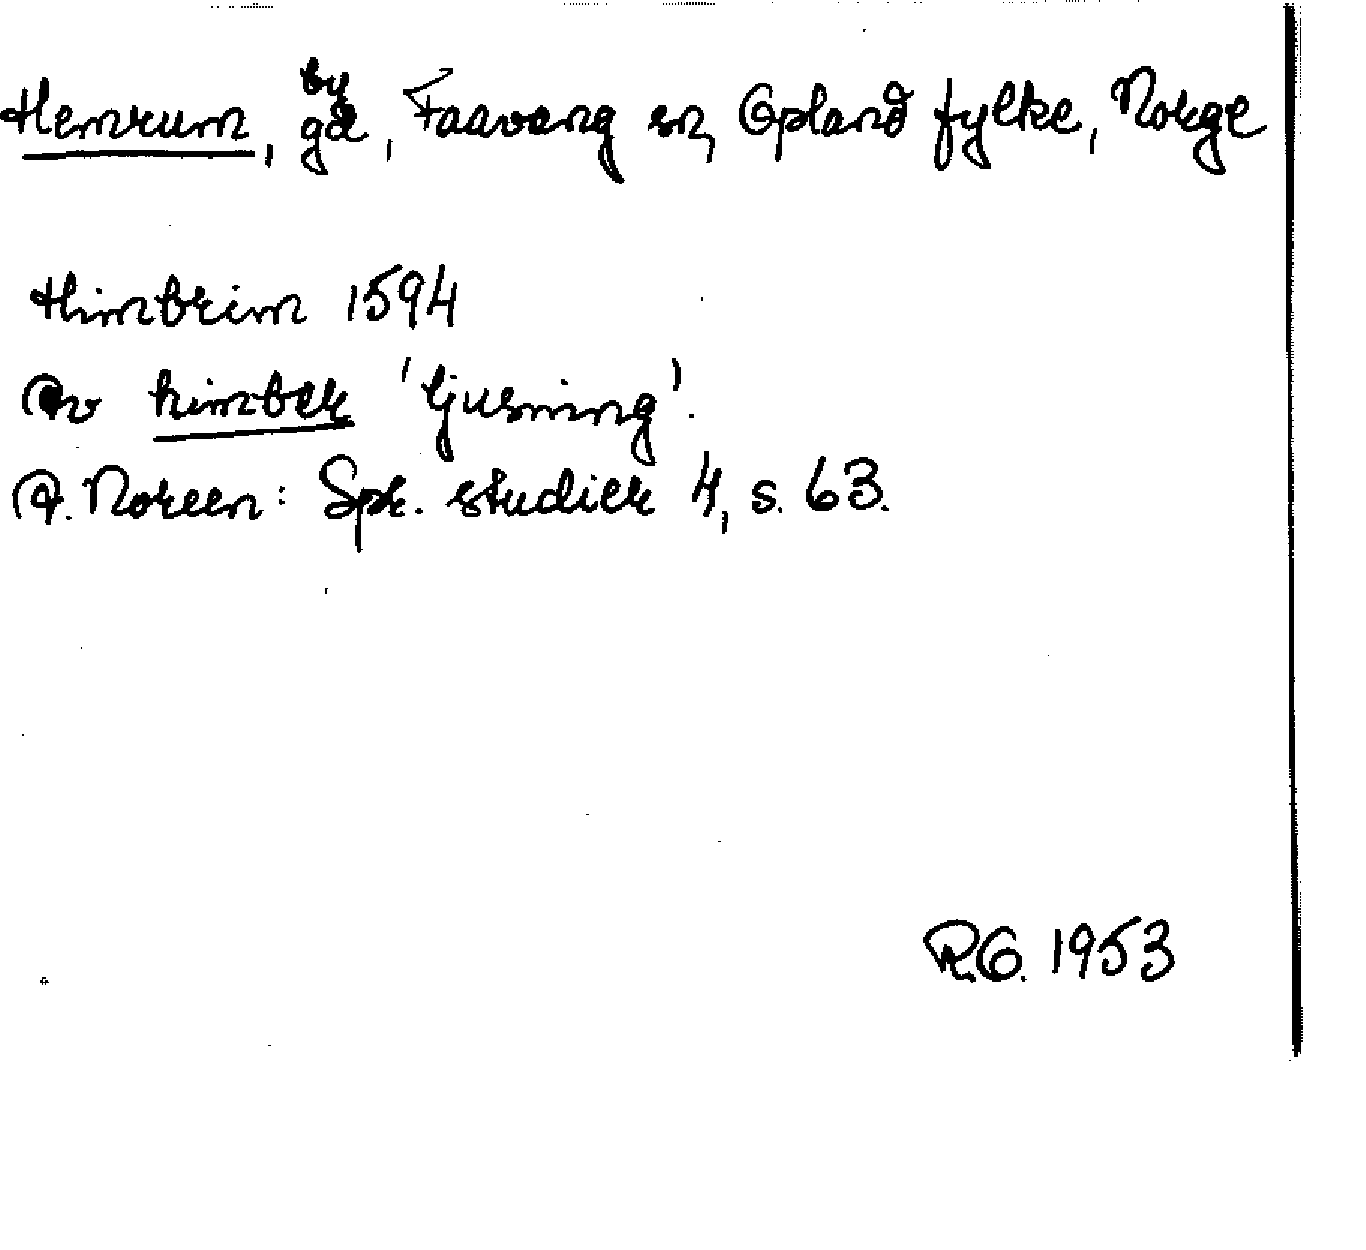 Hemrum, by gd, Faavang sn, Opland fylke, Norge
Himbrim 1594
Av himber 'ljusning'.
A. Noreen: Spr. studier 4, s. 63.
R.G. 1953